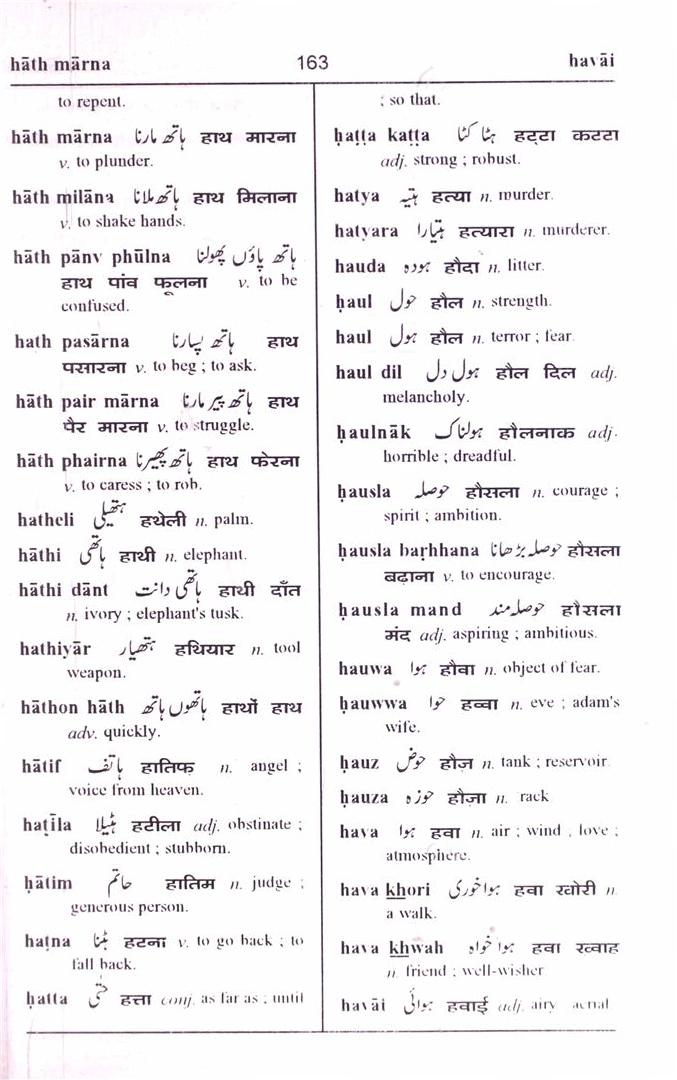 hāth mārna 163 havāi
to repent.
hāth mārna ہاتھ مارنا हाथ मारना
v. to plunder.
hāth milāna ہاتھ ملانا हाथ मिलाना
v. to shake hands.
hāth pānv phūlna ہاتھ پاؤں پھولنا
हाथ पांव फूलना v. to be
confused.
hath pasārna ہاتھ پسارنا हाथ
पसारना v. to beg ; to ask.
hāth pair mārna ہاتھ پیر مارنا हाथ
पैर मारना v. to struggle.
hāth phairna ہاتھ پھیرنا हाथ फेरना
v. to caress ; to rob.
hatheli ہتھیلی हथेली n. palm.
hāthi ہاتھی हाथी n. elephant.
hāthi dānt ہاتھی دانت हाथी दाँत
n. ivory ; elephant's tusk.
hathiyār ہتھیار हथियार n. tool
weapon.
hāthon hāth ہاتھوں ہاتھ हाथों हाथ
adv. quickly.
hātif ہاتف हातिफ़ n. angel ;
voice from heaven.
haṭīla ہٹیلا हटीला adj. obstinate ;
disobedient ; stubborn.
ḥātim حاتم हातिम n. judge ;
generous person.
haṭna ہٹنا हटना v. to go back ; to
fall back.
ḥatta حتیٰ हत्ता conj. as far as ; until
; so that.
haṭṭa kaṭṭa ہٹا کٹا हट्टा कटटा
adj. strong ; robust.
hatya ہتیہ हत्या n. murder.
hatyara ہتیارا हत्यारा n. murderer.
hauda ہودہ हौदा n. litter.
ḥaul حول हौल n. strength.
haul ہول हौल n. terror ; fear.
haul dil ہول دل हौल दिल adj.
melancholy.
ḥaulnāk ہولناک हौलनाक adj.
horrible ; dreadful.
ḥausla حوصلہ हौसला n. courage ;
spirit ; ambition.
ḥausla baṛhhana حوصلہ بڑھانا हौसला
बढ़ाना v. to encourage.
ḥausla mand حوصلہ مند हौसला
मंद adj. aspiring ; ambitious.
hauwa ہوا हौवा n. object of fear.
ḥauwwa حوا हव्वा n. eve ; adam's
wife.
ḥauz حوض हौज़ n. tank ; reservoir.
ḥauza حوزہ हौज़ा n. rack
hava ہوا हवा n. air ; wind , love ;
atmosphere.
hava khori ہوا خوری हवा खोरी n.
a walk.
hava khwah ہوا خواہ हवा ख्वाह
n. friend ; well-wisher
havāi ہوائی हवाई adj. airy aerial